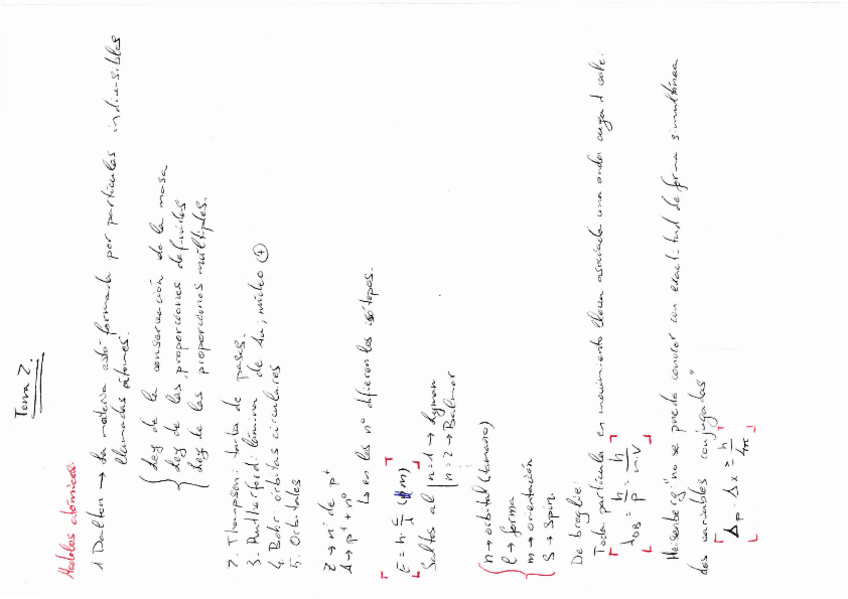 Tema 2.
Modelos atómicos.
1 Dalton → La materia está formada por partículas indivisibles
llamadas átomos.
Ley de la conservación de la masa
Ley de las proporciones definidas
Ley de las proporciones múltiples.
2. Thompson: tarta de pasas.
3. Rutherford: lámina de Au, núcleo ⊕
4. Bohr: órbitas circulares
5. Orbitales
Z → nº de p⁺
A → p⁺ + n⁰
↳ en los n⁰ difieren los isótopos.
E = h · c/λ (m)
Saltos al n=1 → Lyman
n=2 → Balmer
n → orbital (tamaño)
l → forma
m → orientación
S → Spin
De broglie:
Toda partícula en movimiento lleva asociada una onda
λDB = h/p = h/m·v
Heisenberg "no se puede conocer con exactitud de forma simultánea
dos variables conjugadas"
Δp · Δx ≥ h/4π